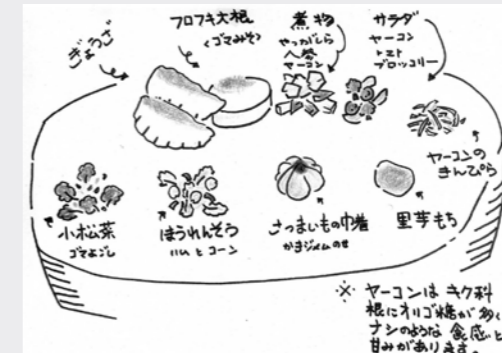 ぎょうざ
フロフキ大根
<ゴマみそ>
煮物
やつがしら
人参
ヤーコン
サラダ
ヤーコン
トマト
ブロッコリー
ヤーコンの
きんぴら
小松菜
ゴマよごし
ほうれんそう
ハムとコーン
さつまいもの巾着
かまジャムのせ
里芋もち
※ ヤーコンは キク科
根にオリゴ糖が多く
ナシのような 食感と
甘みがあります。